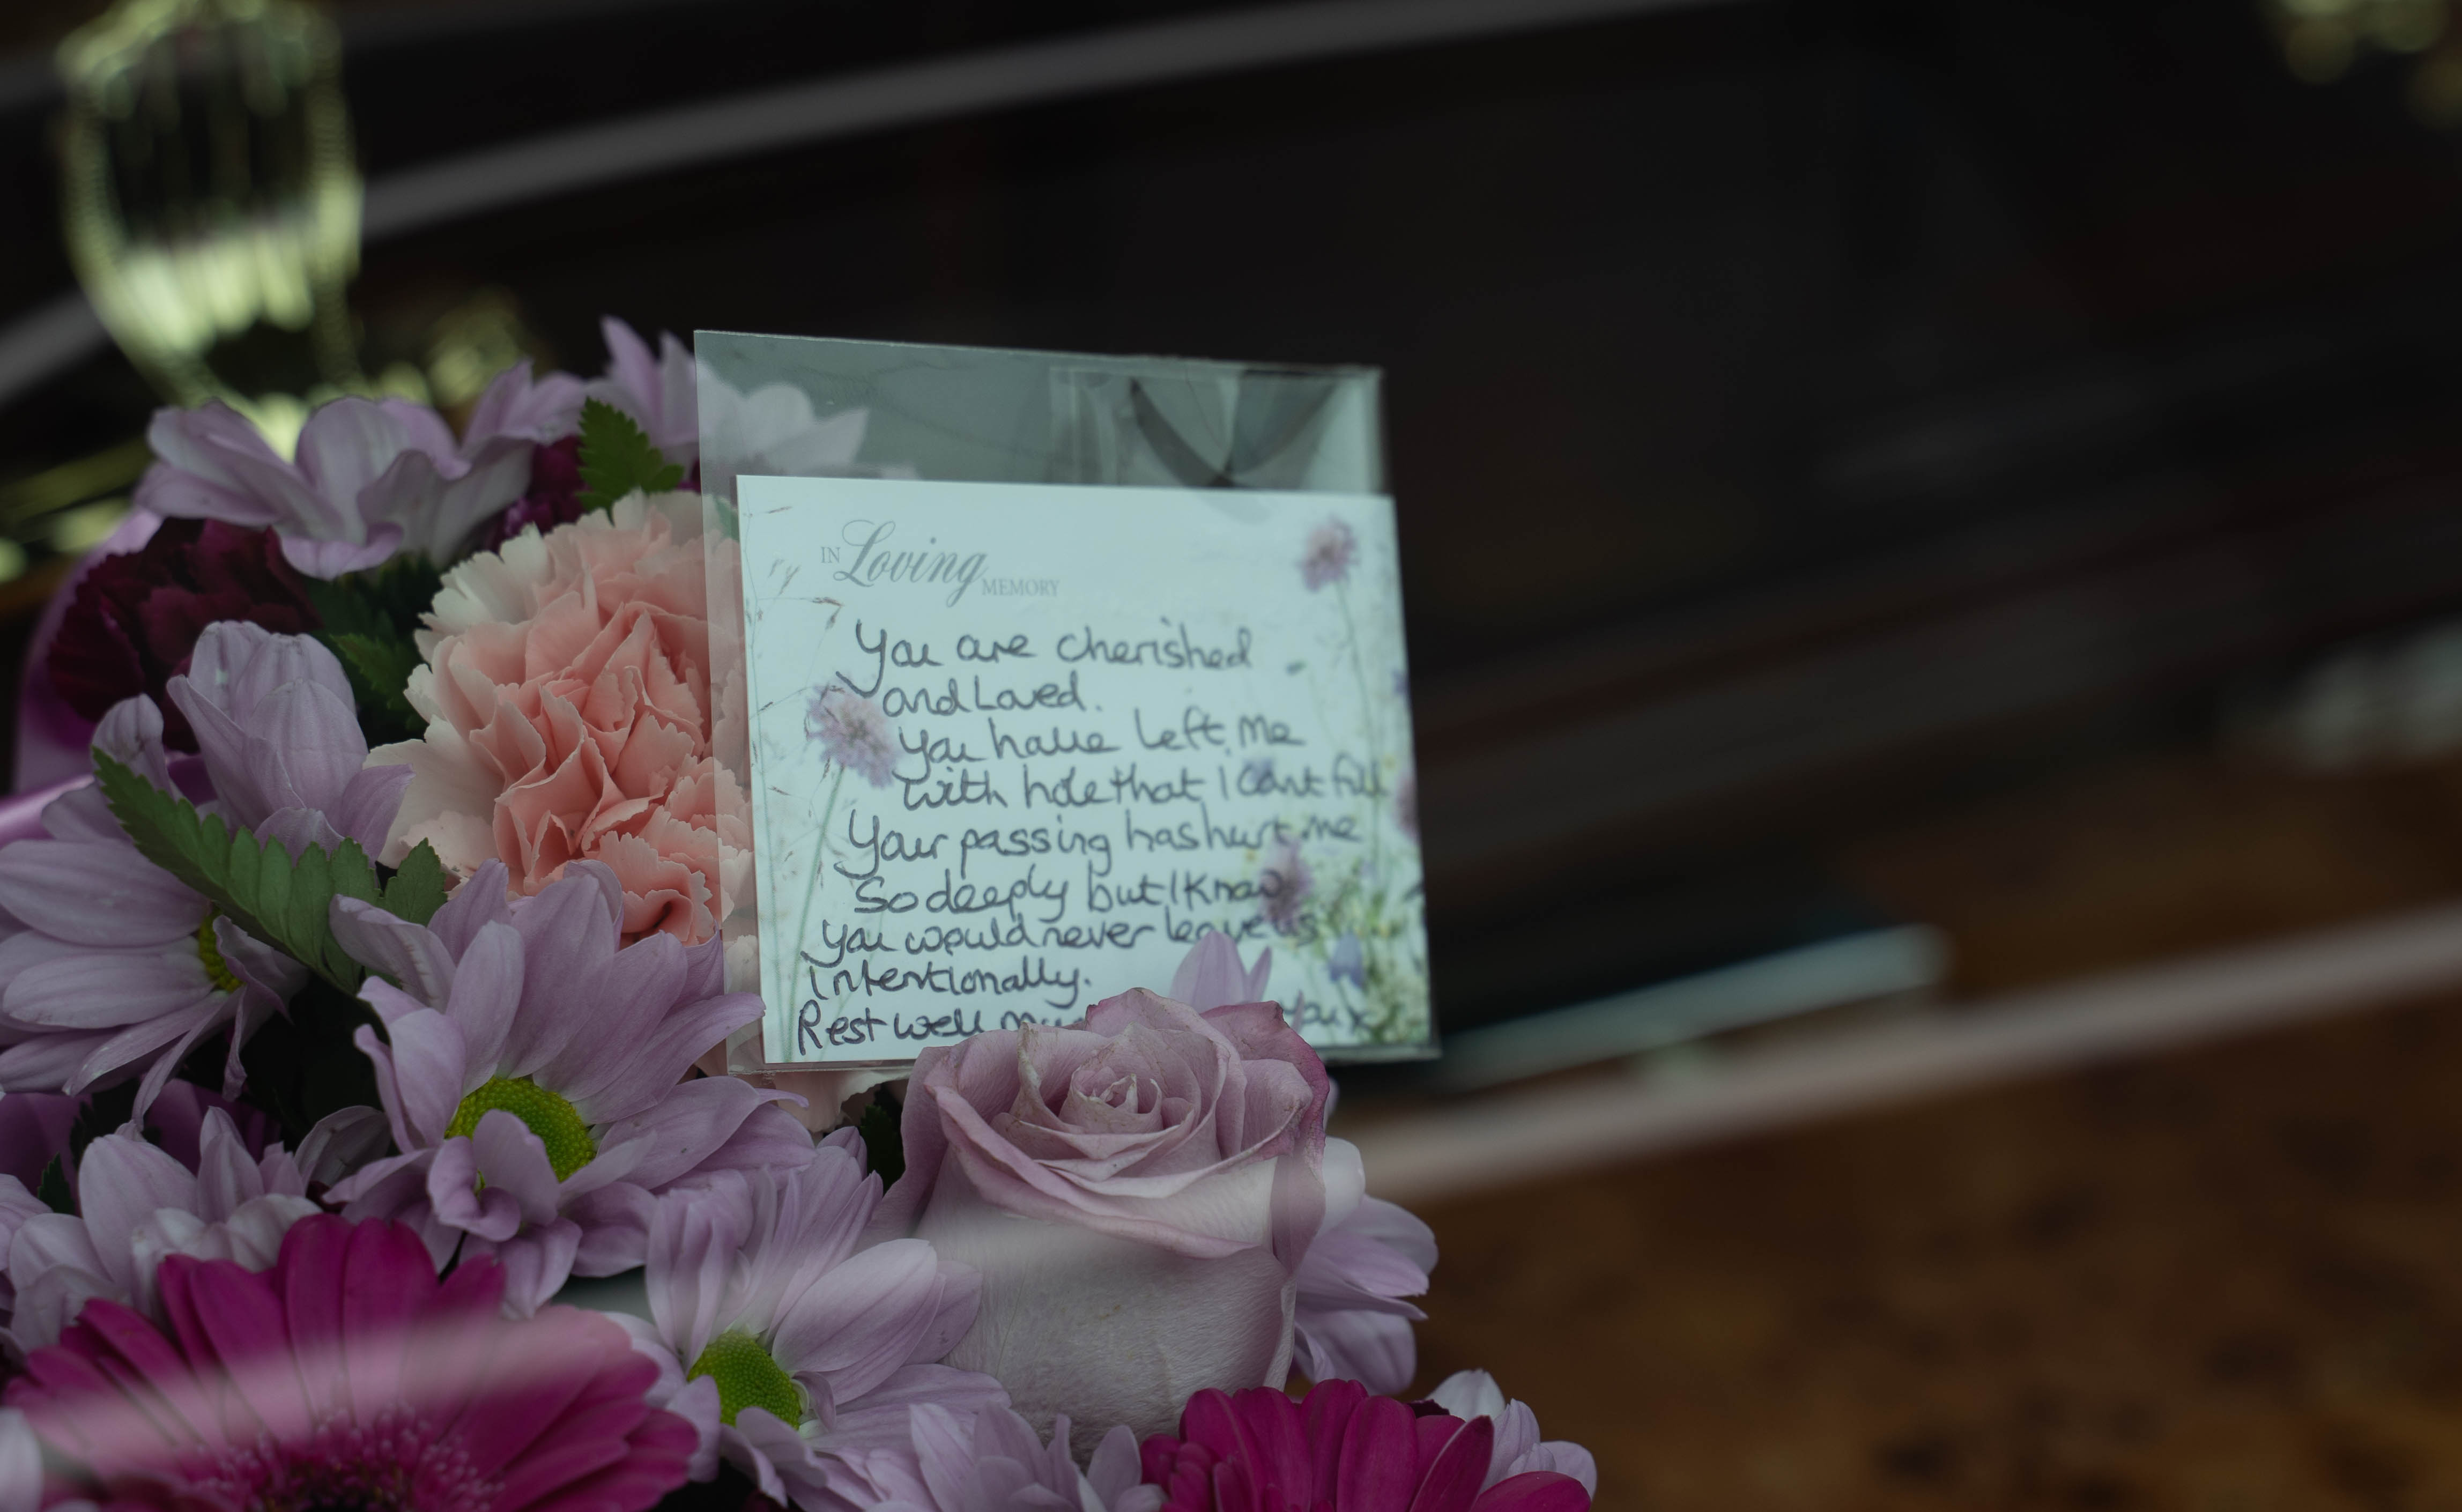 IN Loving MEMORY
You are cherished
and Loved.
You have left me
with hole that I cant fill
Your passing has hurt me
So deeply but I know
you would never leave us
Intentionally.
Rest well you x